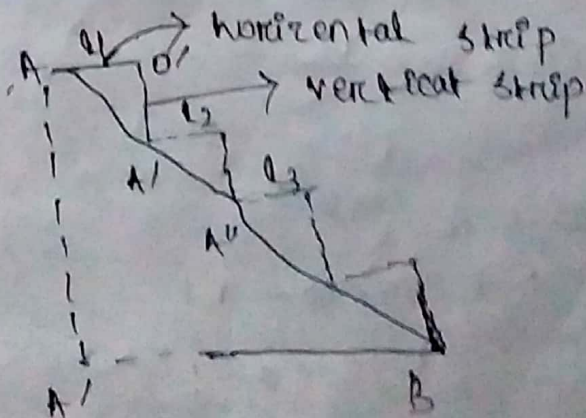 l1 horizental strip
A O'
vertical strip
l2
A' l3
A"
A' B